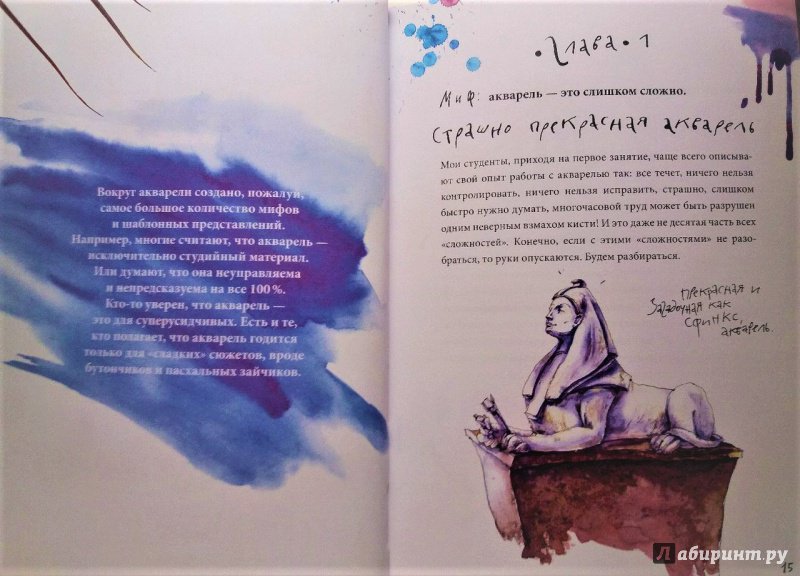 Вокруг акварели создано, пожалуй,
самое большое количество мифов
и шаблонных представлений.
Например, многие считают, что акварель —
исключительно студийный материал.
Или думают, что она неуправляема
и непредсказуема на все 100 %.
Кто-то уверен, что акварель —
это для суперусидчивых. Есть и те,
кто полагает, что акварель годится
только для «сладких» сюжетов, вроде
бутончиков и пасхальных зайчиков.
• Глава • 1
Миф: акварель — это слишком сложно.
Страшно прекрасная акварель
Мои студенты, приходя на первое занятие, чаще всего описыва-
ют свой опыт работы с акварелью так: все течет, ничего нельзя
контролировать, ничего нельзя исправить, страшно, слишком
быстро нужно думать, многочасовой труд может быть разрушен
одним неверным взмахом кисти! И это даже не десятая часть всех
«сложностей». Конечно, если с этими «сложностями» не разо-
браться, то руки опускаются. Будем разбираться.
прекрасная и
загадочная как
сфинкс,
акварель.
Лабиринт.ру
15